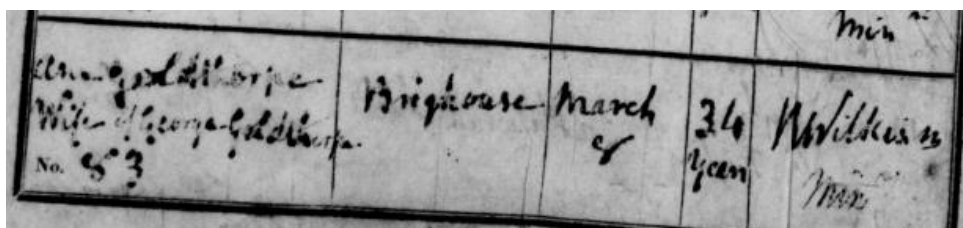 Min
Ann Goldthorpe
Wife of George Goldthorpe
No. 83
Brighouse
March
8
34
Years
Min